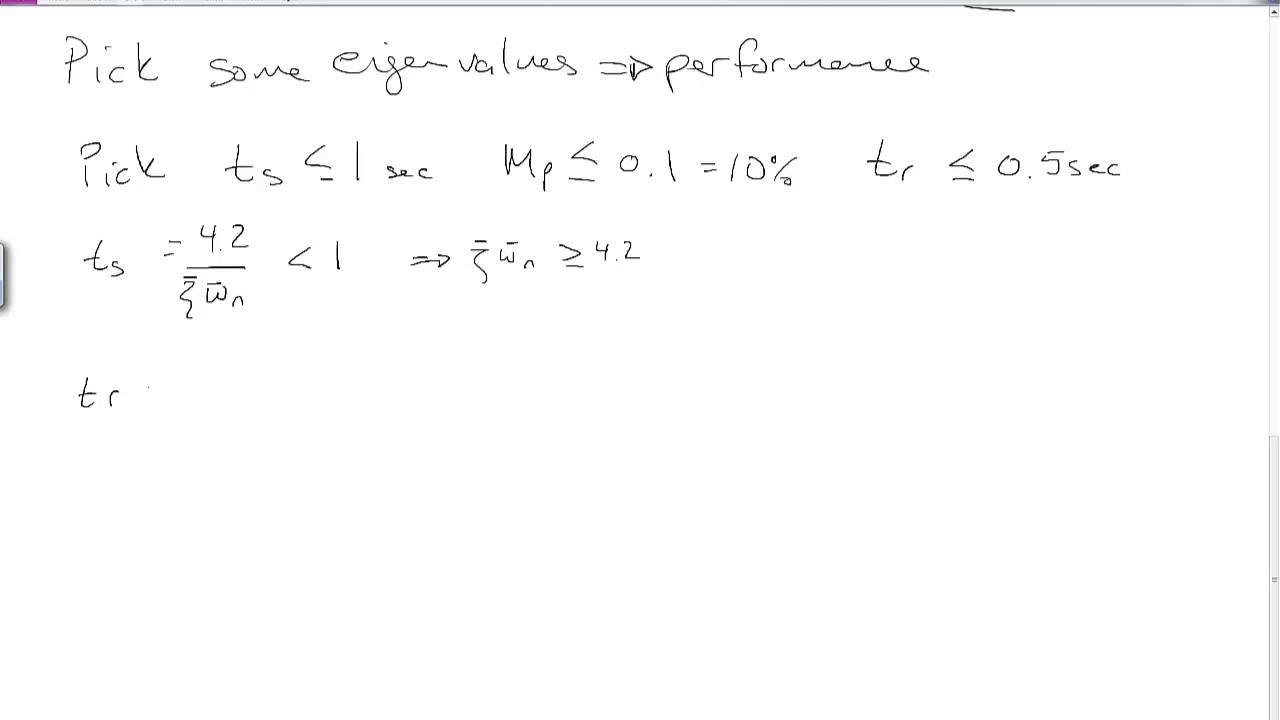 Pick some eigenvalues ⇒ performance
Pick ts ≤ 1 sec Mp ≤ 0.1 = 10% tr ≤ 0.5sec
ts = 4.2 / ξ̄ ω̄n < 1 ⇒ ξ̄ ω̄n ≥ 4.2
tr